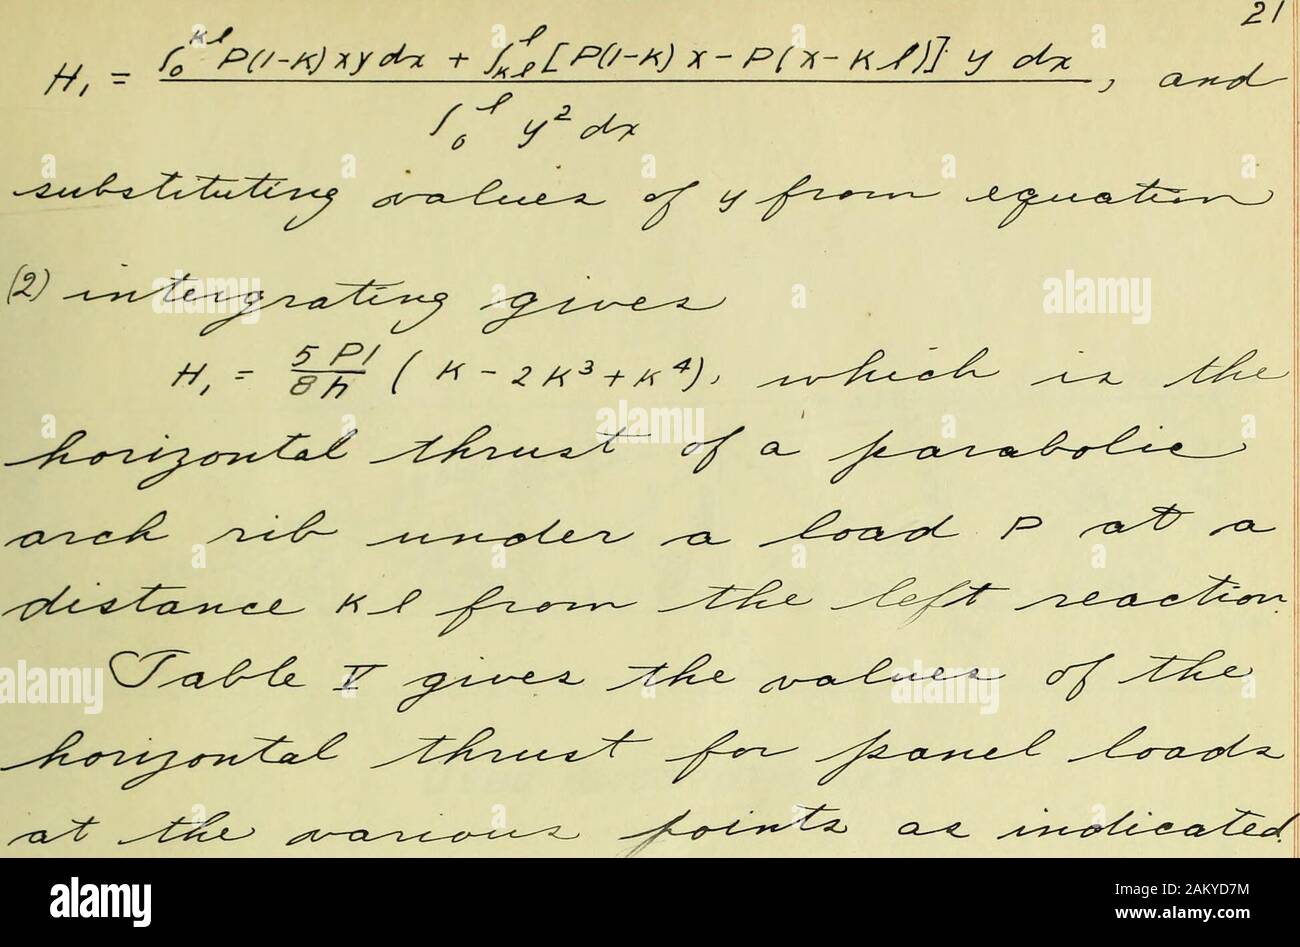 21
H₁ = ∫₀ᴷˡ P(1-K)xydx + ∫ₖₗˡ [P(1-K)x - P(x-Kl)] y dx / ∫₀ˡ y² dx, and
substituting values of y from equation
(2) intergrating gives
H₁ = 5 Pl / 8 h ( K - 2K³ + K⁴), which is the
horizontal thrust of a parabolic
arch rib under a load P at a
distance Kl from the left reaction.
Table V gives the values of the
horizontal thrust for panel loads
at the various points as indicated.
alamy
alamy
Image ID: 2AKYD7M
www.alamy.com